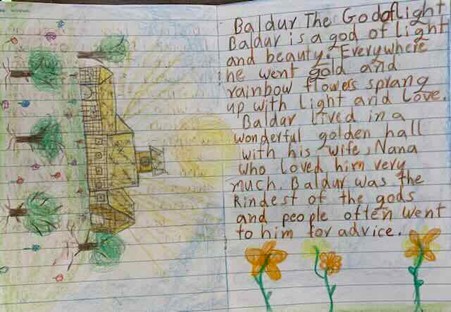 Baldur The God of light
Baldur is a god of light
and beauty. Everywhere
he went gold and
rainbow flowers sprang
up with light and love.
Baldur lived in a
wonderful golden hall
with his wife, Nana
who loved him very
much. Baldur was the
Kindest of the gods
and people often went
to him for advice.